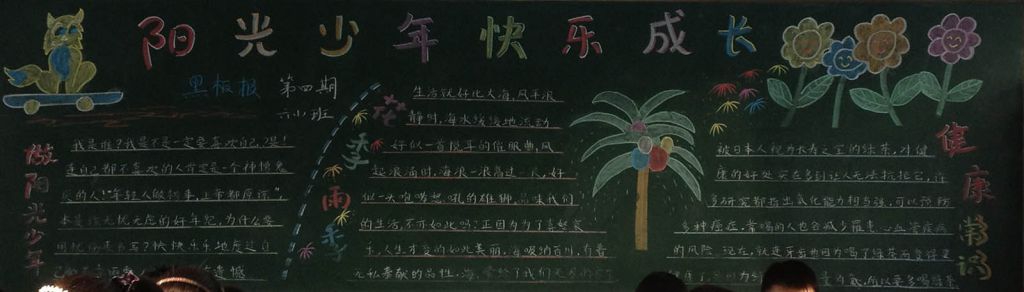 阳光少年快乐成长
黑板报 第四期
六小班
做阳光少年
我是谁?我是不是一定要喜欢自己,
自己都不喜欢的人肯定是一个神愤
的人"年轻人做错事,上帝都原谅"
本是该无忧无虑的好年纪,为什么要
用忧伤来书写?快快乐乐地度过自
遗憾
花季雨季
生活就好比大海,风平浪
静时,海水缓缓地流动
好似一首悦耳的催眠曲,风
起浪涌时,海浪一浪高过一浪,好
似一头咆哮怒吼的雄狮,品味我们
的生活,不可如此吗?正因为为了喜怒哀
乐,人生才变的如此美丽,海吸纳百川,有着
无私奉献的品性,海,
健康常识
被日本人视为长寿之宝的绿茶,对健
康的好处实在多到让人无法抗拒它,许
多研究都指出氧化能力相当强,可以预防
多种癌症,常喝的人也会减少罹患心血管疾病
的风险 现在,就连牙齿也因为喝了绿茶而变得更
所以要多喝绿茶